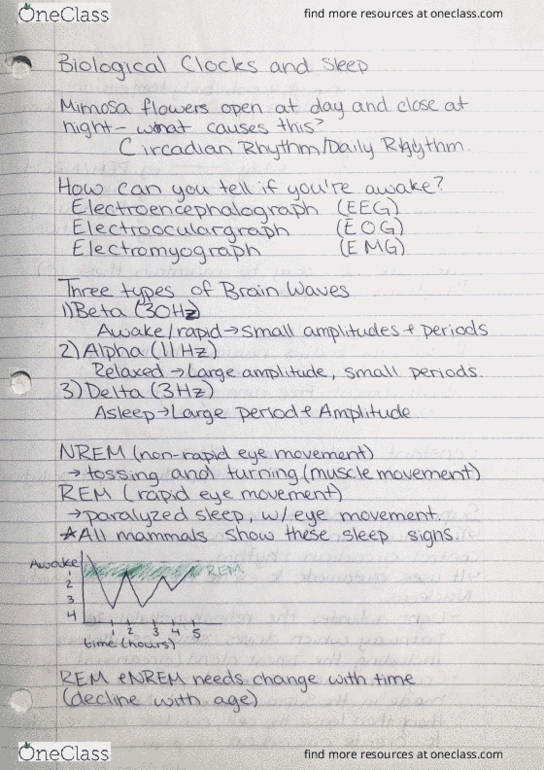 OneClass
find more resources at oneclass.com
Biological Clocks and Sleep
Mimosa flowers open at day and close at
night - what causes this?
Circadian Rhythm/Daily Rhythm.
How can you tell if you're awake?
Electroencephalograph (EEG)
Electrooculargraph (EOG)
Electromyograph (EMG)
Three types of Brain Waves
1) Beta (30Hz)
Awake/rapid → small amplitudes + periods
2) Alpha (11 Hz)
Relaxed → Large amplitude, small periods.
3) Delta (3Hz)
Asleep → Large period + Amplitude
NREM (non-rapid eye movement)
→ tossing and turning (muscle movement)
REM (rapid eye movement)
→ paralyzed sleep, w/ eye movement.
*All mammals show these sleep signs.
Awake
REM
1
2
3
4
1 2 3 4 5
time (hours)
REM + NREM needs change with time
(decline with age)
OneClass
find more resources at oneclass.com